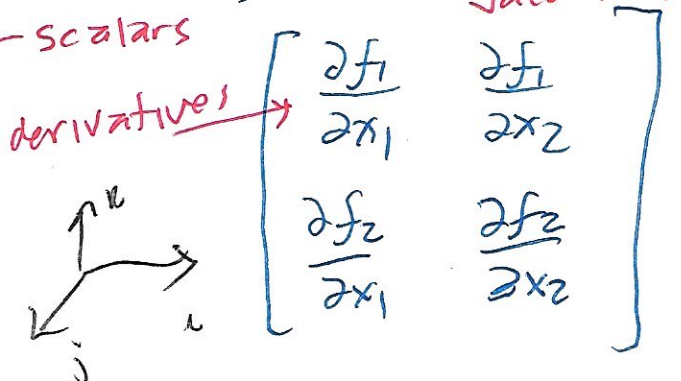 - scalars
derivatives
∂f1/∂x1 ∂f1/∂x2
∂f2/∂x1 ∂f2/∂x2
k
i
j